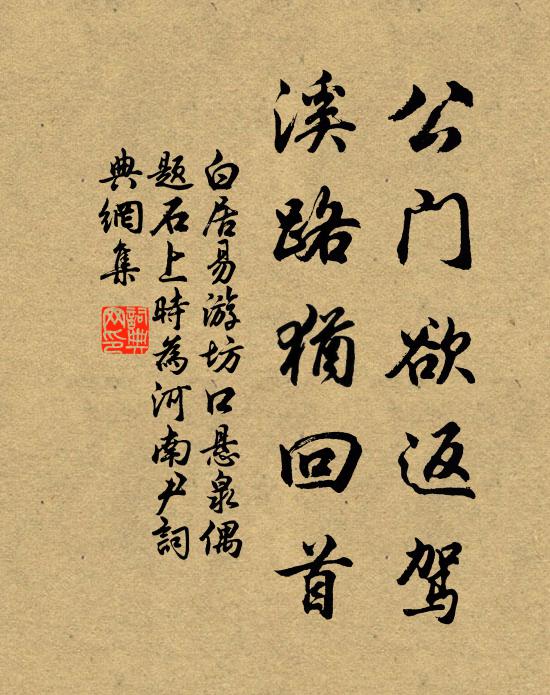 公门欲返驾
溪路犹回首
白居易游坊口悬泉偶
题石上時為河南尹詞
典網集
詞典
网印